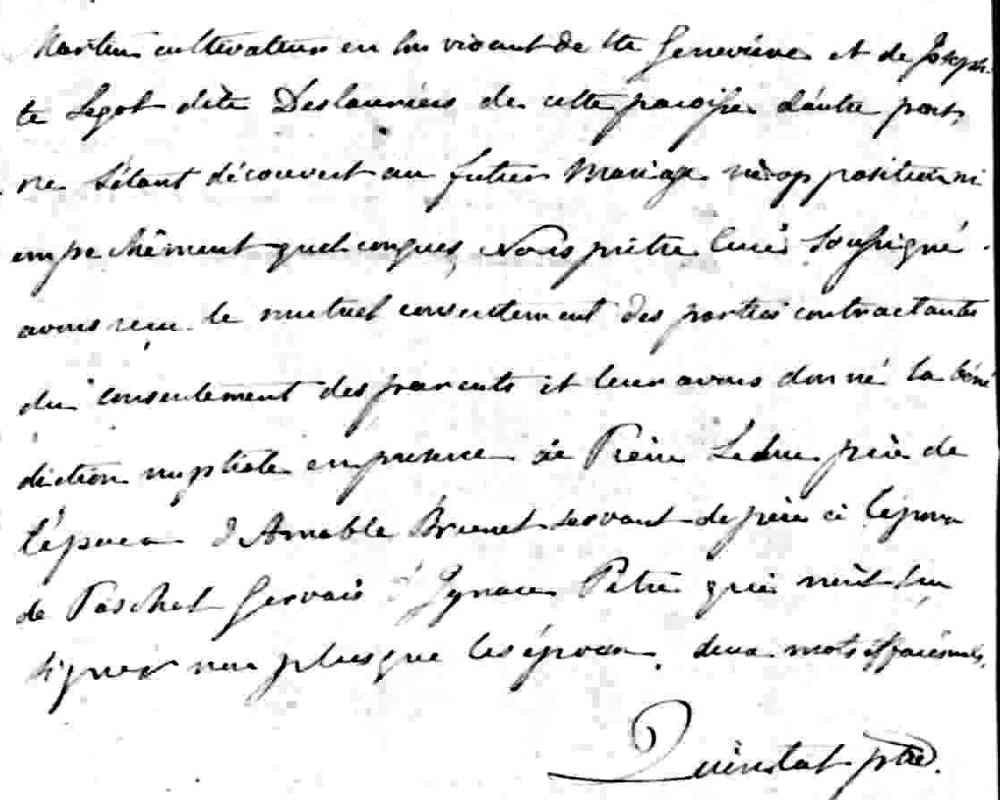 Martin cultivateur en son vivant de Ste Geneviève et de Joseph-
te Legot dite Deslauriers de cette paroisse d'autre part,
ne s'étant découvert au futur Mariage ni opposition ni
empechêment quelconques, Nous prêtre Curé Soussigné
avons reçu le mutuel consentement des parties contractantes
du consentement des parents et leur avons donné la béné
diction nuptiale en presence de Pierre Leduc père de
l'époux d'Amable Brunet servant de père à l'épouse
de Paschel Gervais d'Ignace Petre qui n'ont su
signer non plus que les époux. deux mots effacés nuls.
ptre.